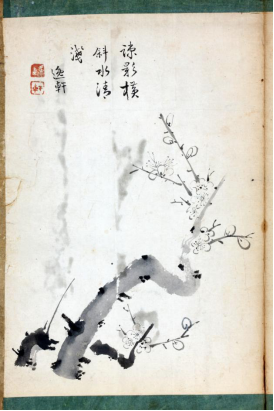 疎影橫
斜水清
淺
逸軒